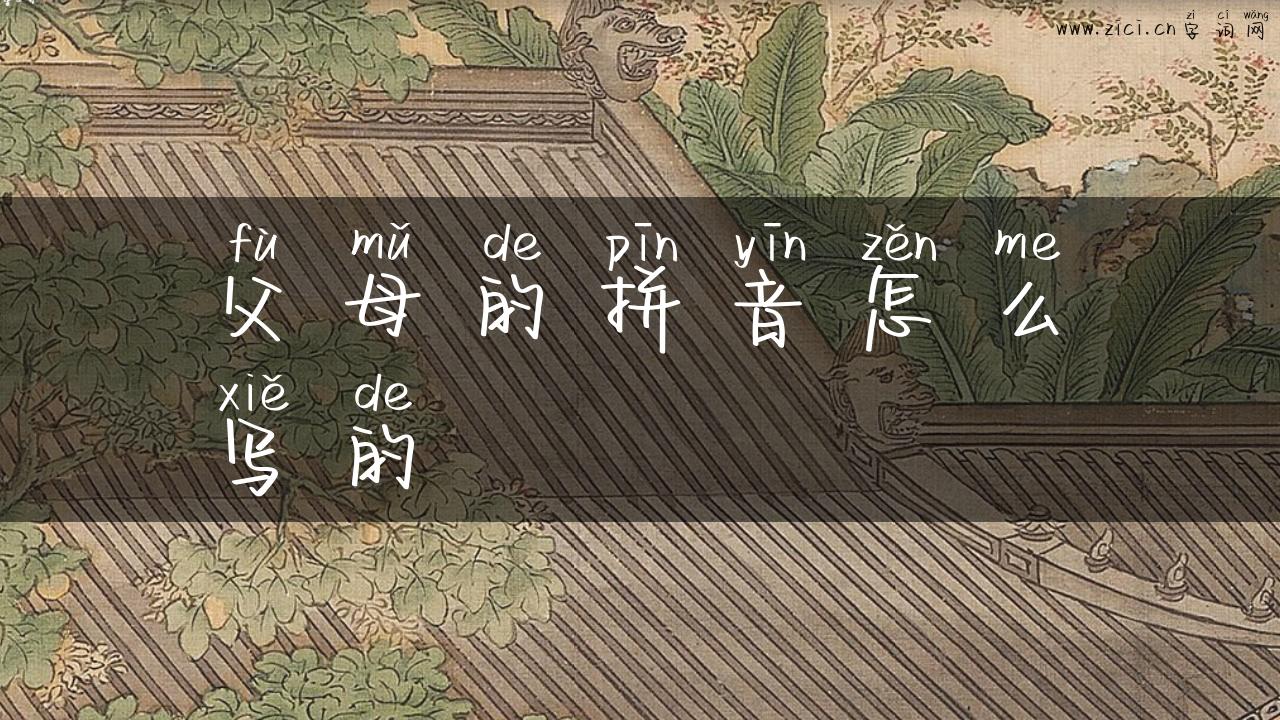 zì cí wǎng
www.zici.cn 字词网
fù mǔ de pīn yīn zěn me
父母的拼音怎么
xiě de
写的